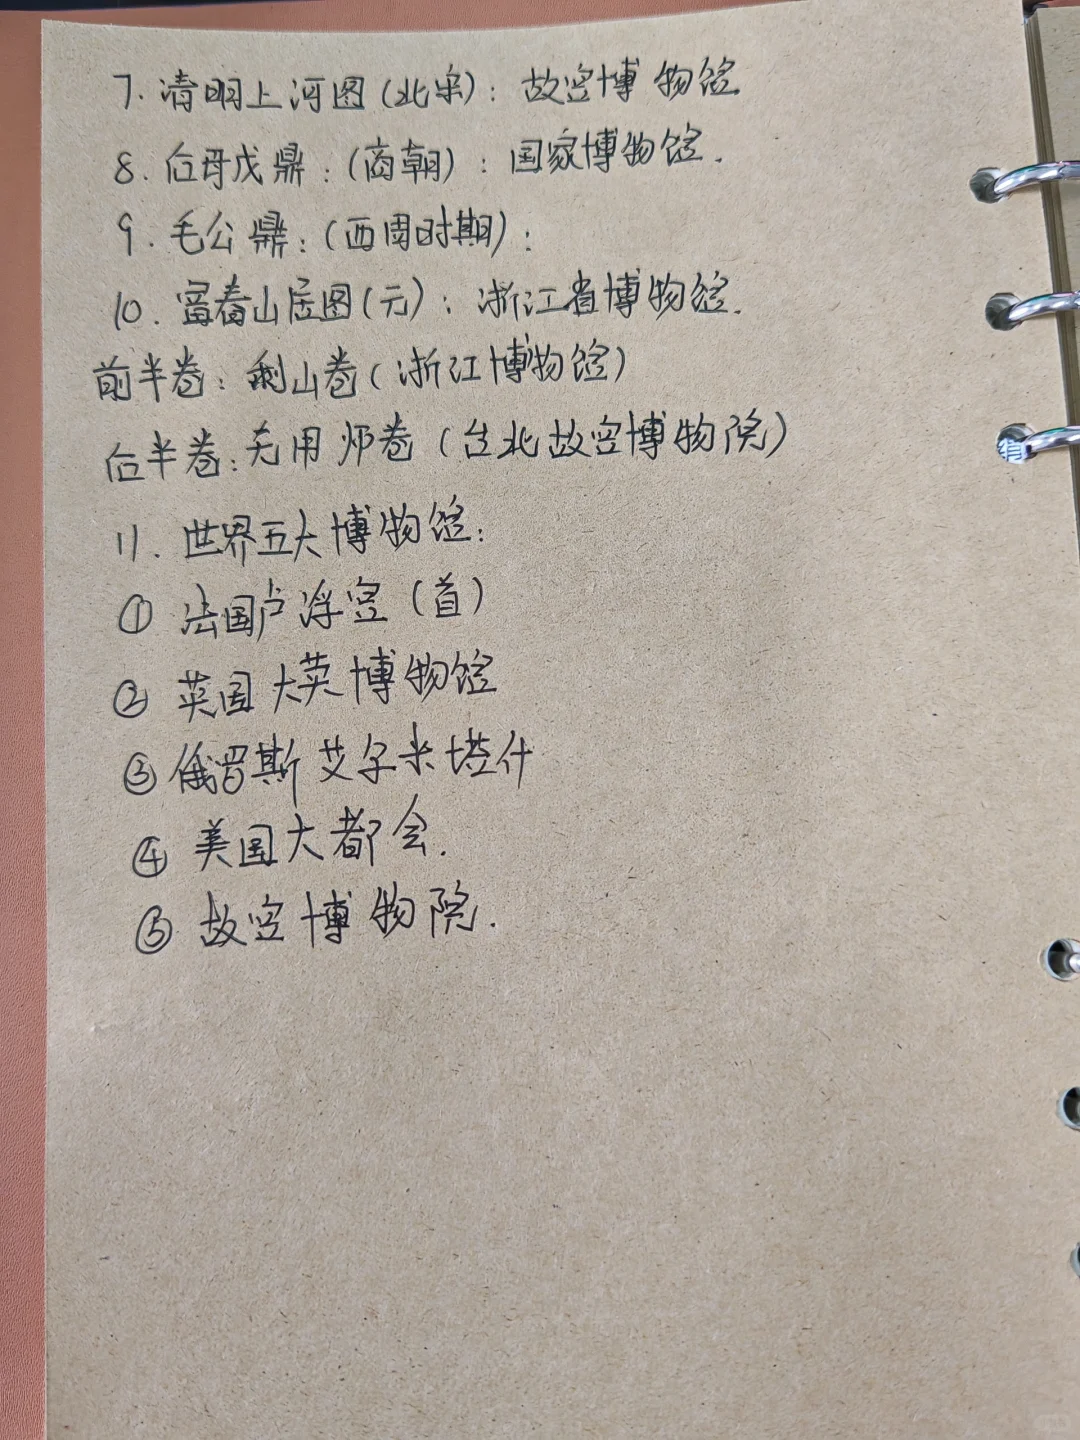 7. 清明上河图(北宋): 故宫博物馆
8. 后母戊鼎:(商朝): 国家博物馆.
9. 毛公鼎:(西周时期):
10. 富春山居图(元): 浙江省博物馆.
前半卷: 剩山卷(浙江博物馆)
后半卷: 无用师卷(台北故宫博物院)
11. 世界五大博物馆:
① 法国卢浮宫(首)
② 英国大英博物馆
③ 俄罗斯艾尔米塔什
④ 美国大都会.
⑤ 故宫博物院.